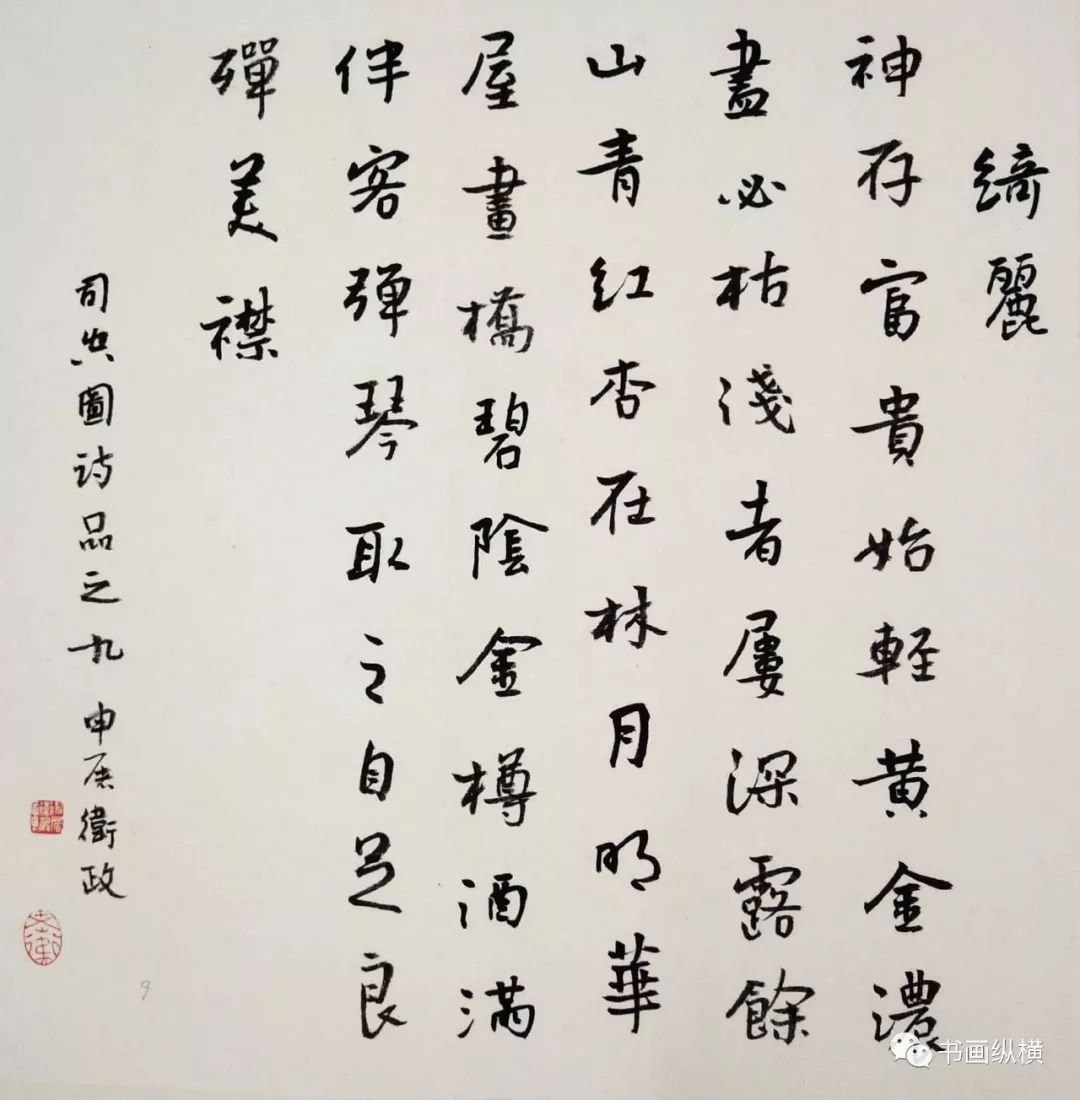 綺麗
神存富貴始輕黃金濃
盡必枯淺者屢深露餘
山青紅杏在林月明華
屋畫橋碧陰金樽酒滿
伴客彈琴取之自足良
殫美襟
司空圖詩品之九 申展衛政
书画纵横
9